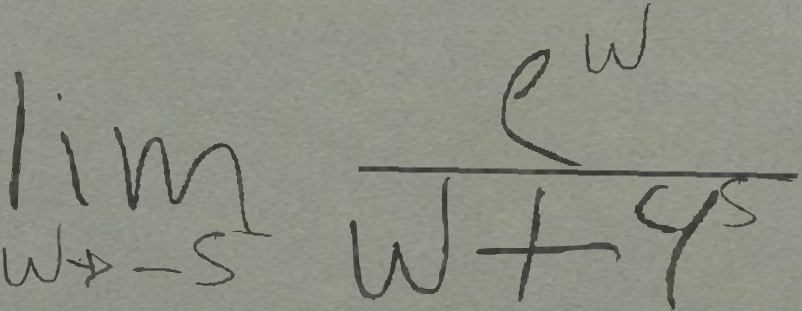 \lim_{w \to -5^-} \frac{e^w}{w + 9^5}